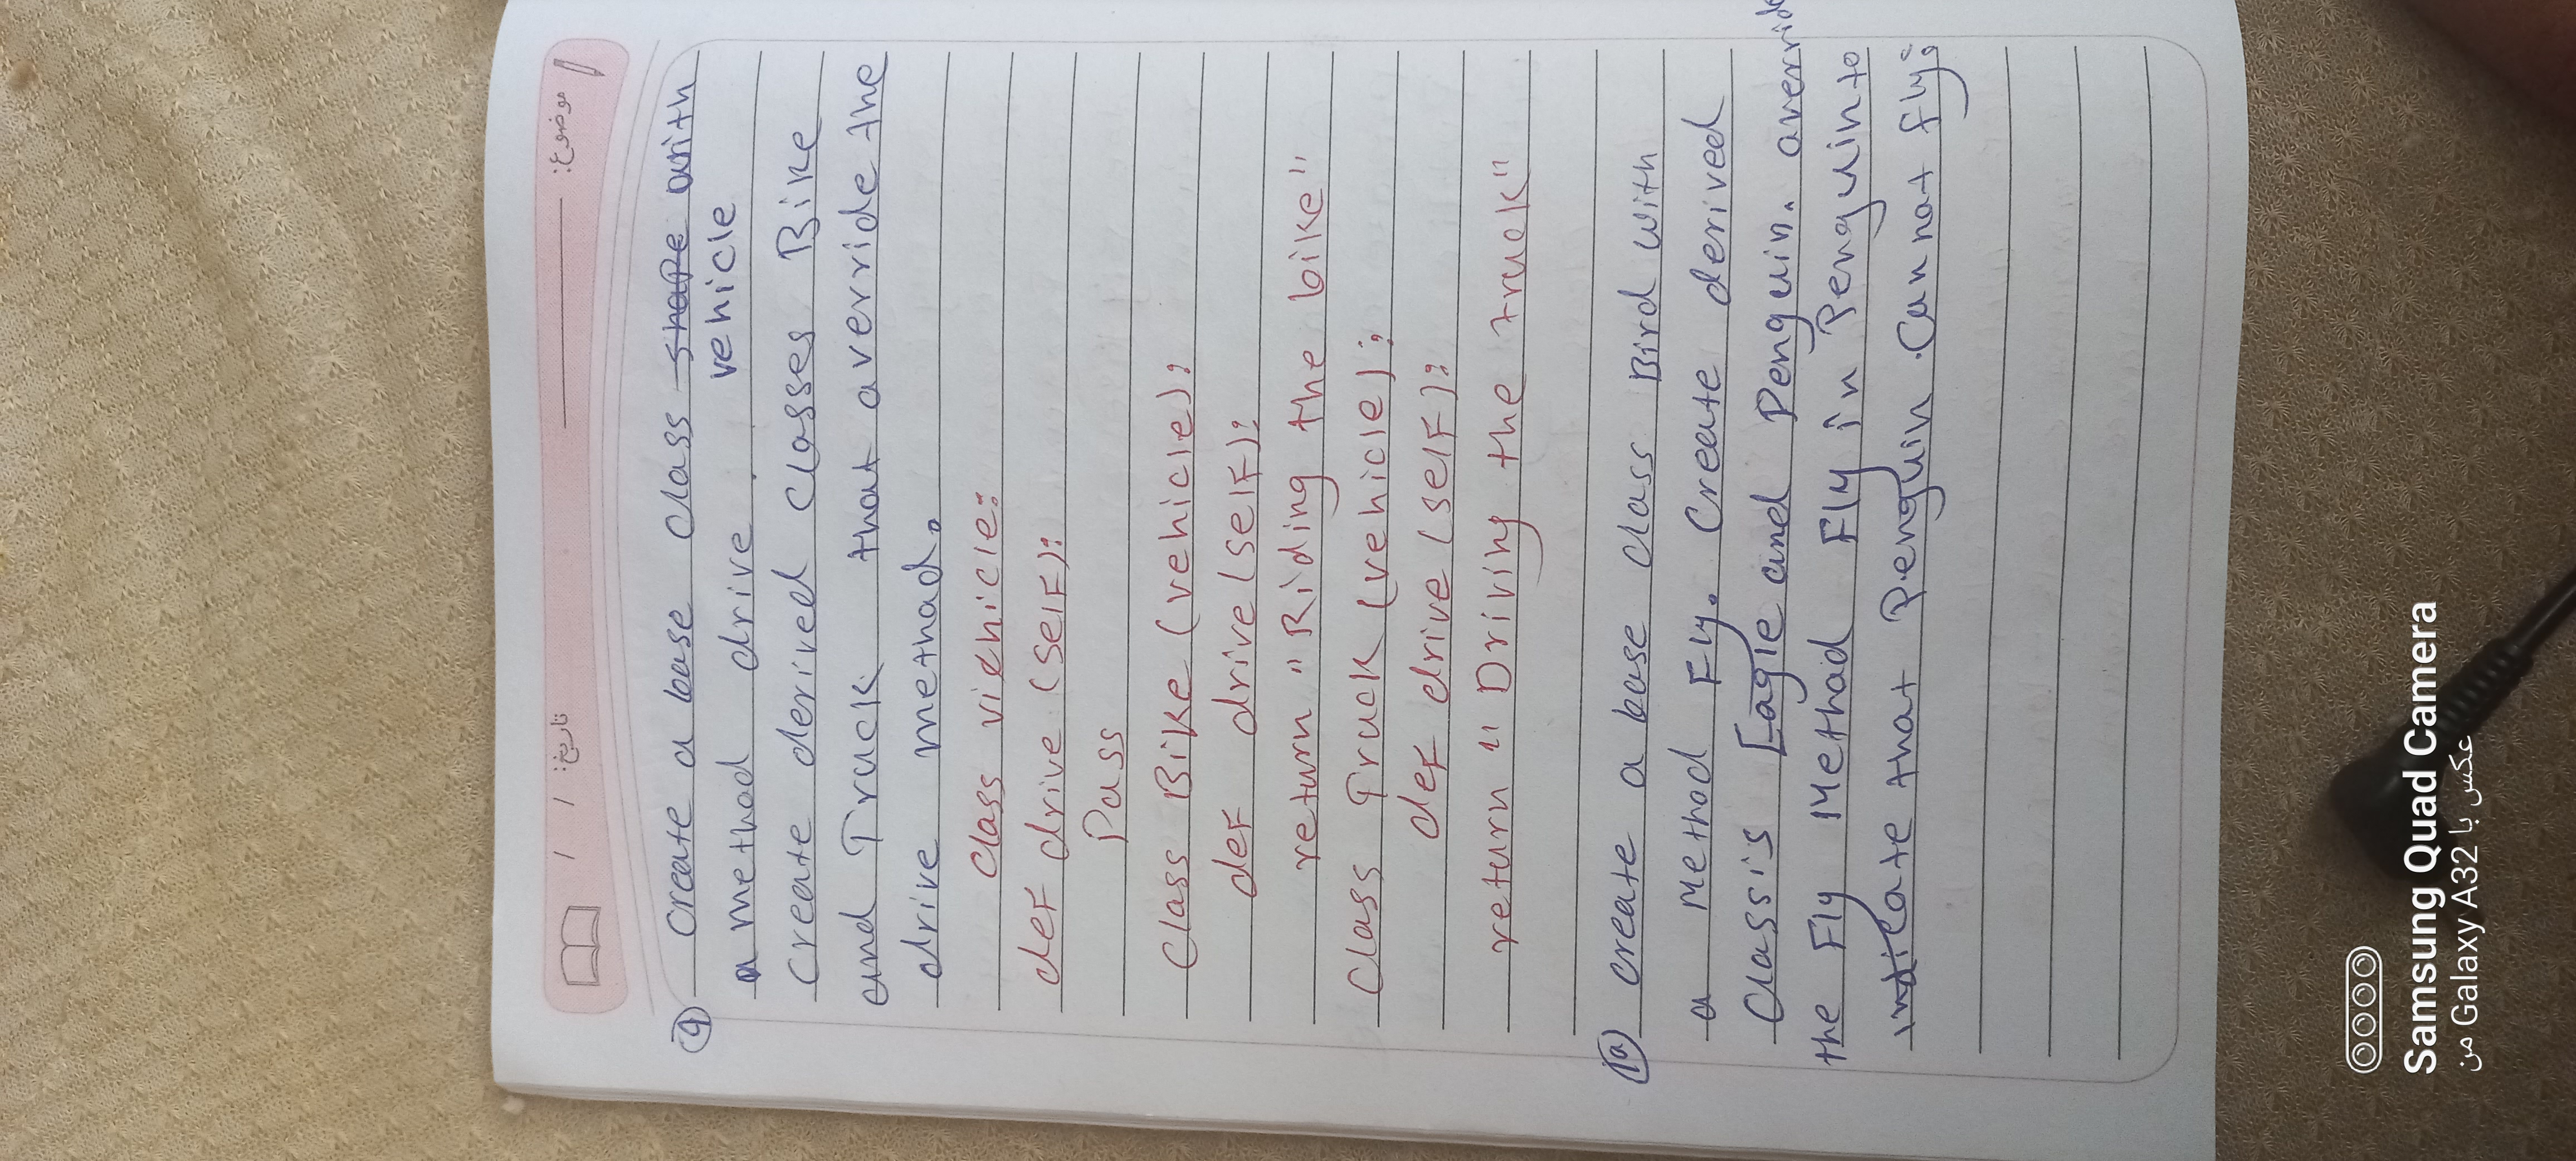 موضوع: تاریخ: / /
9 create a base class shape with
vehicle
a method drive.
create derived classes Bike
and Truck that averride the
drive methad.
class viehicle:
def drive (self):
Pass
class Bike (vehicle):
def drive (self):
return "Riding the bike"
class Truck (vehicle):
def drive (self):
return "Driving the truck"
10 create a base class Bird with
a Method Fly. Create derived
classis Eagle and Penguin. averride
the Fly Methad Fly in Penguin to
indicate that Penguin Cannat fly:
Samsung Quad Camera
عکس با Galaxy A32 من